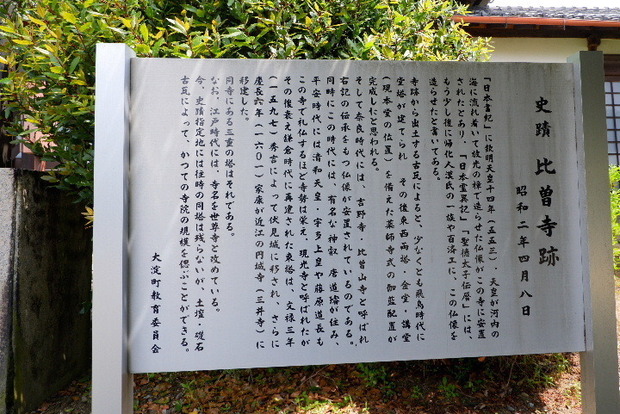 史蹟 比曽寺跡
昭和二年四月八日
「日本書紀」に欽明天皇十四年（五五三）、天皇が河内の
海に流れ着いて放光の樟で造らせた仏像がこの寺に安置
されたとあり、「日本霊異記」「聖徳太子伝暦」には、
もう少し後に帰化人漢氏の一族や百済工に、この仏像を
造らせたと書いてある。
寺跡から出土する古瓦によると、少なくとも飛鳥時代に
堂塔が建てられ その後東西両塔・金堂・講堂
（現本堂の位置）を備えた薬師寺式の伽藍配置が
完成したと思われる。
そして奈良時代には、吉野寺・比曽山寺と呼ばれ
右記の伝承をもつ仏像が安置されているのである。
同時にこの時代には、有名な神叡・唐道璿が住み、
平安時代には清和天皇・宇多上皇や藤原道長も
この寺で仏れするほど寺勢は栄え、現光寺と呼ばれたが
その後衰え鎌倉時代に再建された東塔は、文禄三年
（一五九七）秀吉によって伏見城に移され、さらに
慶長六年（一六〇一）家康が近江の円城寺（三井寺）に
移建した。
同寺にある三重の塔はそれである。
なお、江戸時代には、寺名を世尊寺と改めている。
今、史蹟指定地には往時の同塔は残らないが、土壇・礎石
古瓦によって、かつての寺院の規模を偲ぶことができる。
大淀町教育委員会